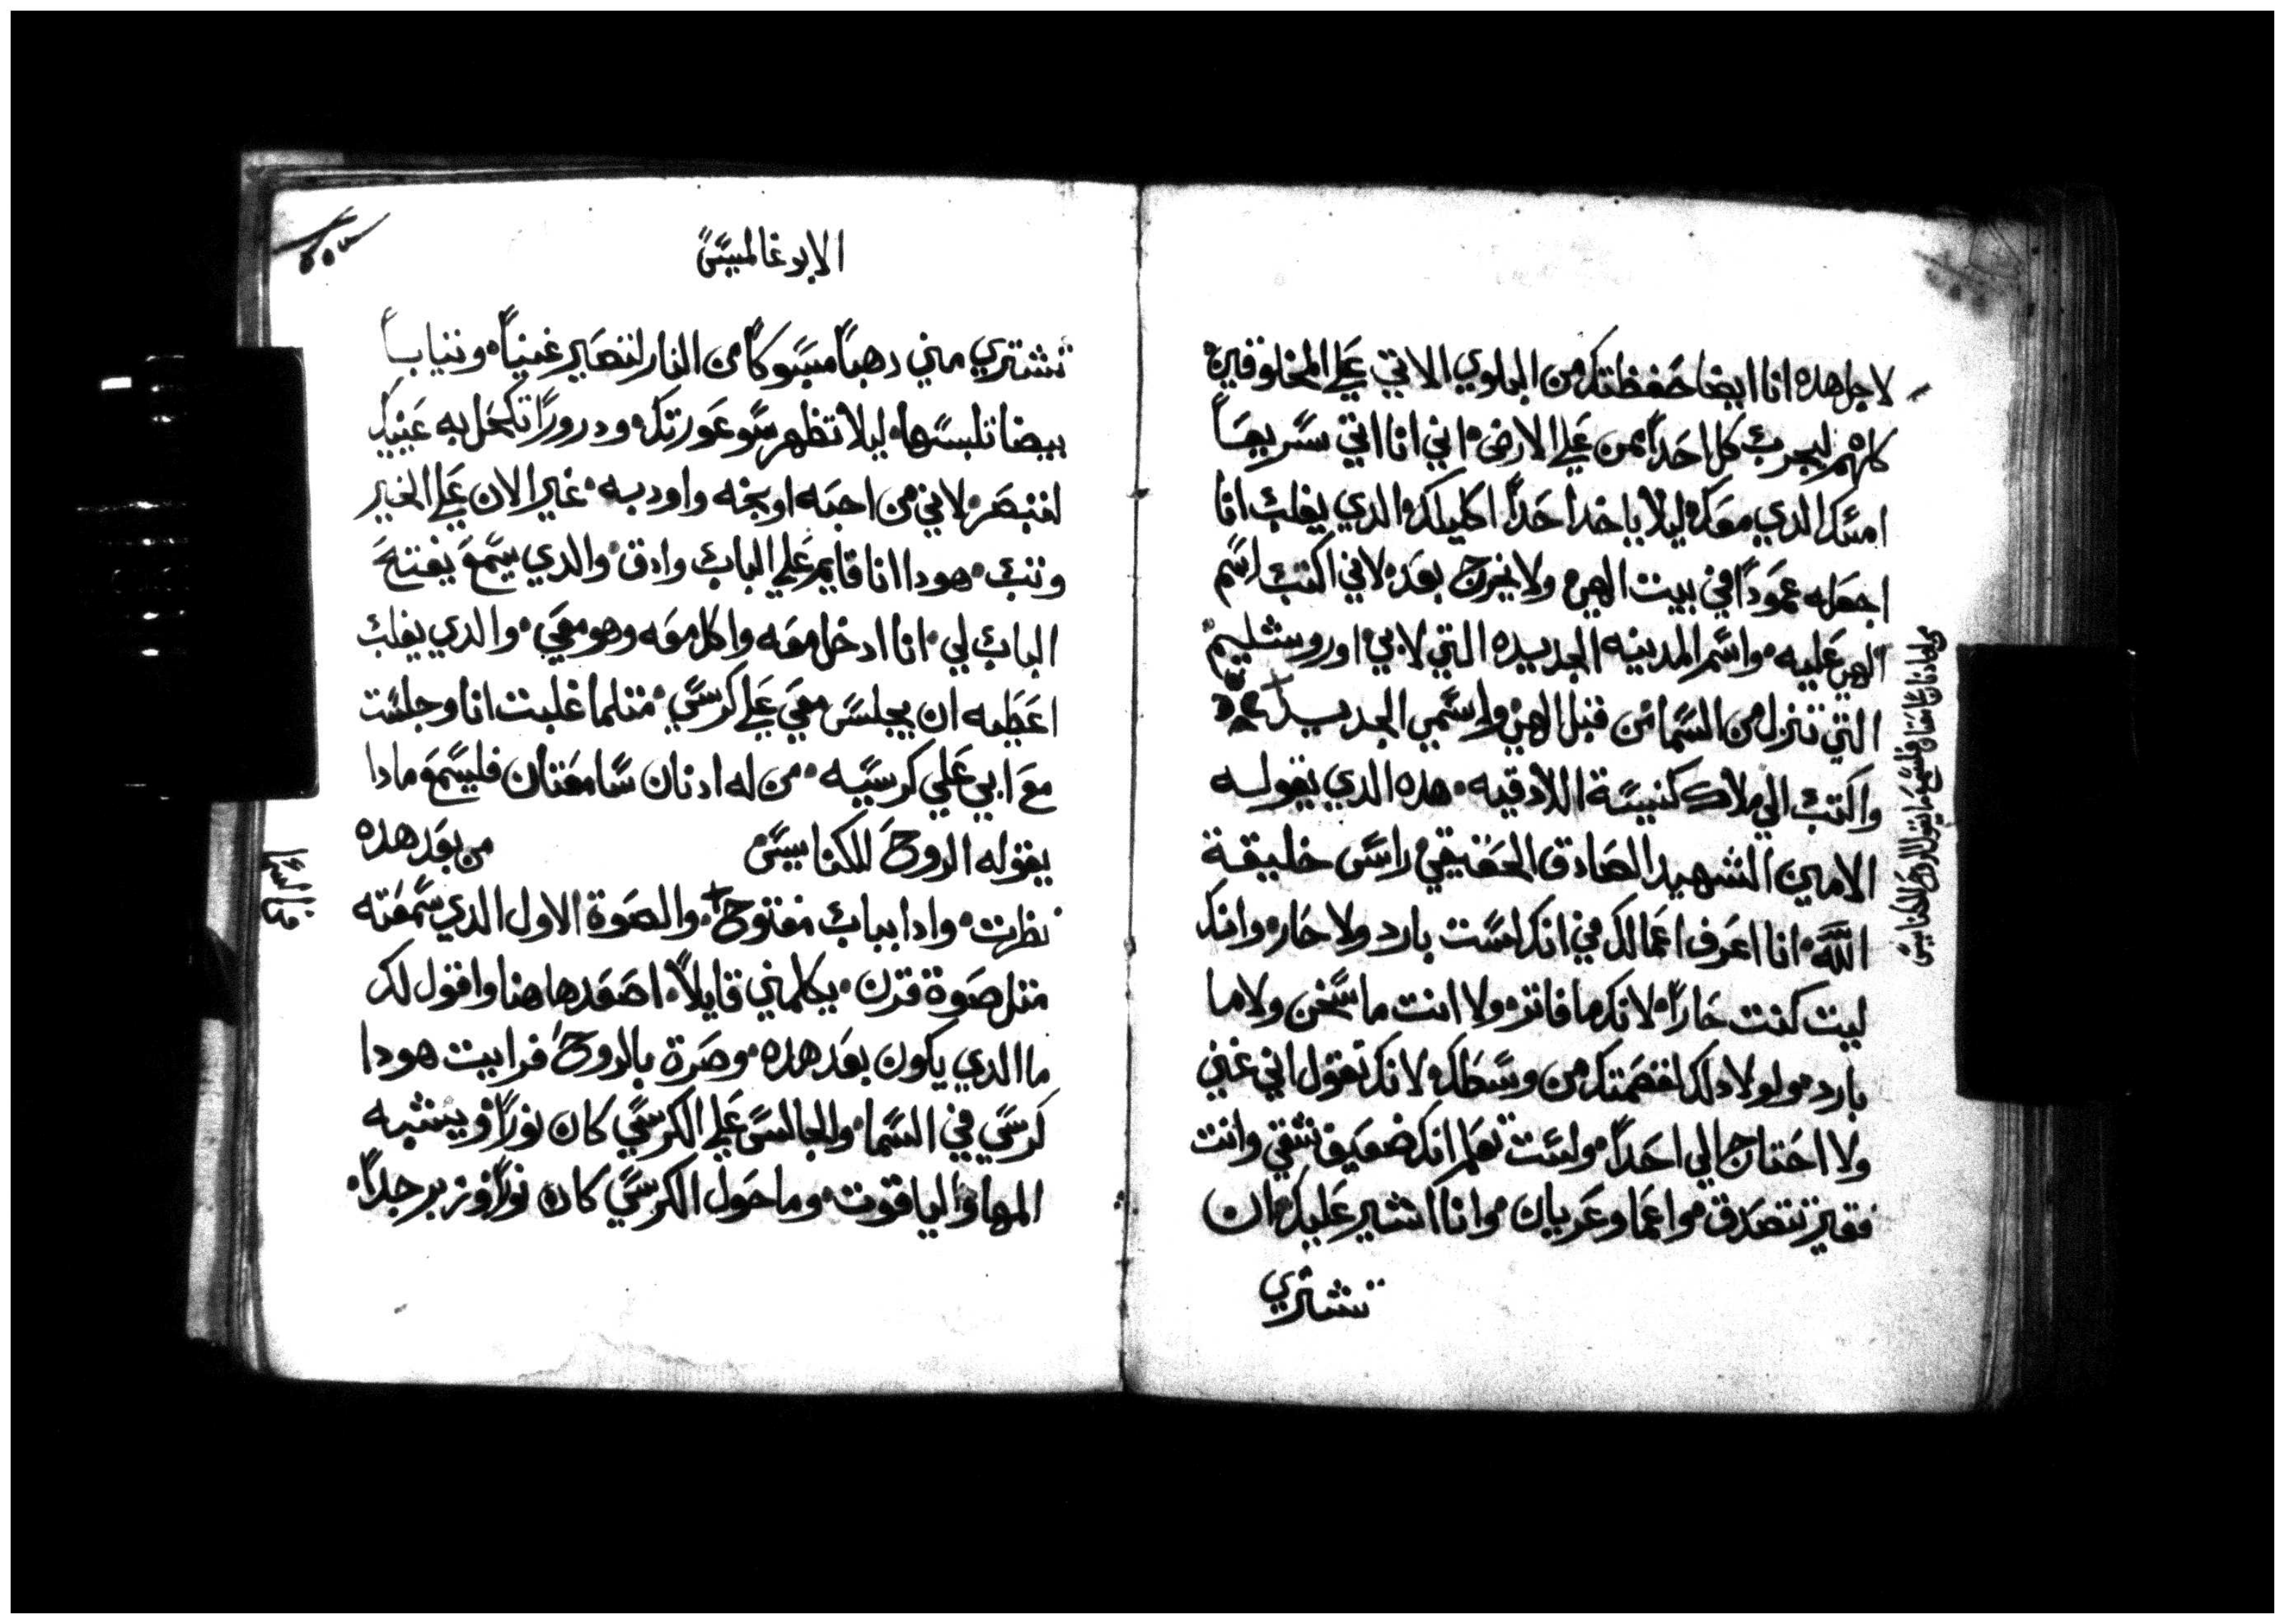 لاجل هده انا ايضا حفظتك من البلوي الاتي علي المخلوقين
كلهم ليجرب كل احداً ممن علي الارض اني انا اتي سريعاً
امسك الدي معك ليلا ياخد احداً اكليلك الدي يغلب انا
اجعله عموداً في بيت الهي ولا يخرج بعد لاني اكتب اسم
الهي عليه واسم المدينه الجديده التي لابي اوروشليم
التي تنزل من السما من قبل الهي واسمي الجديد
واكتب الي ملاك كنيسة اللادقيه هده الدي يقوله
الامين الشهيد الصادق الحقيقي راس خليقة
الله انا اعرف اعمالك في انك لست بارد ولا حار وانك
ليت كنت حاراً لانك ما فاتر ولا انت ما سخن ولا ما
بارد ولولا دلك لفصمتك من وسطك لانك تقول اني غني
ولا احتاج الي احداً ولست تعلم انك ضعيف شقي وانت
فقير تتصدق واعما وعريان وانا اشير عليك ان
تشتري
من له ادنان سامعتان فليسمع ما يقول الروح للكنايس
الابوغالمسيس
تشتري مني دهباً مسبوكاً من النار لتصير غنياً وتياباً
بيضا تلبسها ليلا تظهر سو عورتك ودروراً تكحل به عينيك
لتبصر لاني من احبه اوبخه واودبه غير الان علي الخير
وتب هودا انا قايم علي الباب وادق والدي يسمع يفتح
الباب لي انا ادخل معه واكل معه وهو معي والدي يغلب
اعطيه ان يجلس معي علي كرسي متلما غلبت انا وجلست
مع ابي علي كرسيه من له ادنان سامعتان فليسمع مادا
يقوله الروح للكنايس من بعد هده
نظرت وادا بباب مفتوح والصوة الاول الدي سمعته
متل صوة قرن يكلمني قايلاً اصعد هاهنا واقول لك
ما الدي يكون بعد هده وصرة بالروح فرايت هودا
كرسي في السما والجالس علي الكرسي كان نوراً ويشبه
المها والياقوت وما حول الكرسي كان نوراً وزبرجداً